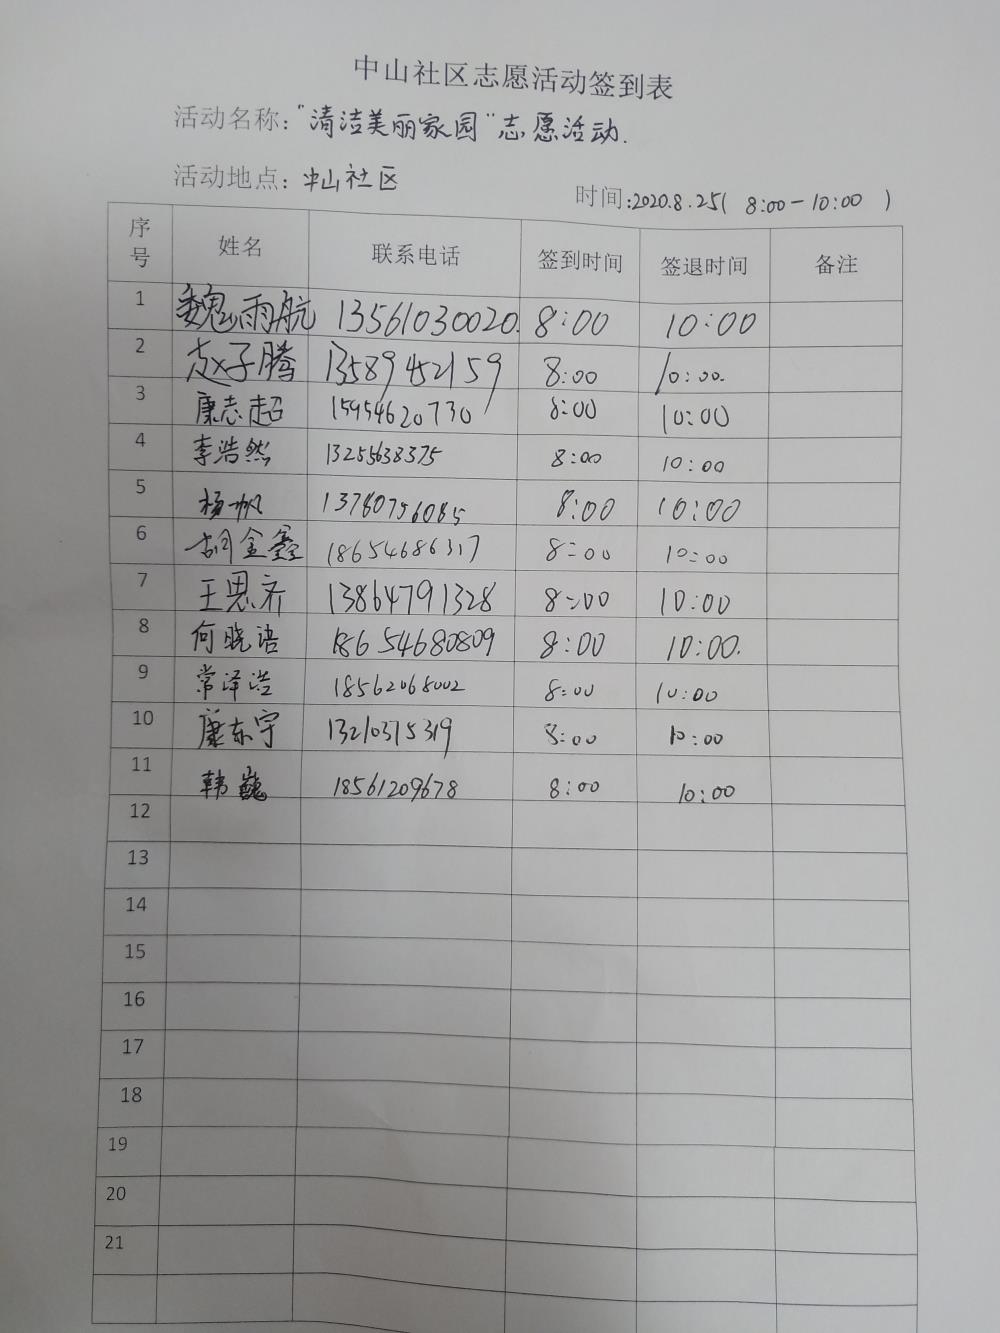 中山社区志愿活动签到表
活动名称：“清洁美丽家园”志愿活动.
活动地点：中山社区
时间：2020.8.25( 8:00－10:00 )
序号 姓名 联系电话 签到时间 签退时间 备注
1 魏雨航 13561030020. 8:00 10:00
2 赵子腾 13589452159 8:00 10:00.
3 康志超 15954620730 8:00 10:00
4 李浩然 13255638375 8:00 10:00
5 杨帆 13780756085 8:00 10:00
6 胡金鑫 18654686317 8:00 10:00
7 王思齐 13864791328 8:00 10:00
8 何晓语 18654680809 8:00 10:00.
9 常泽浩 18562068002 8:00 10:00
10 康东宇 13210375319 8:00 10:00
11 韩巍 18561209678 8:00 10:00
12
13
14
15
16
17
18
19
20
21